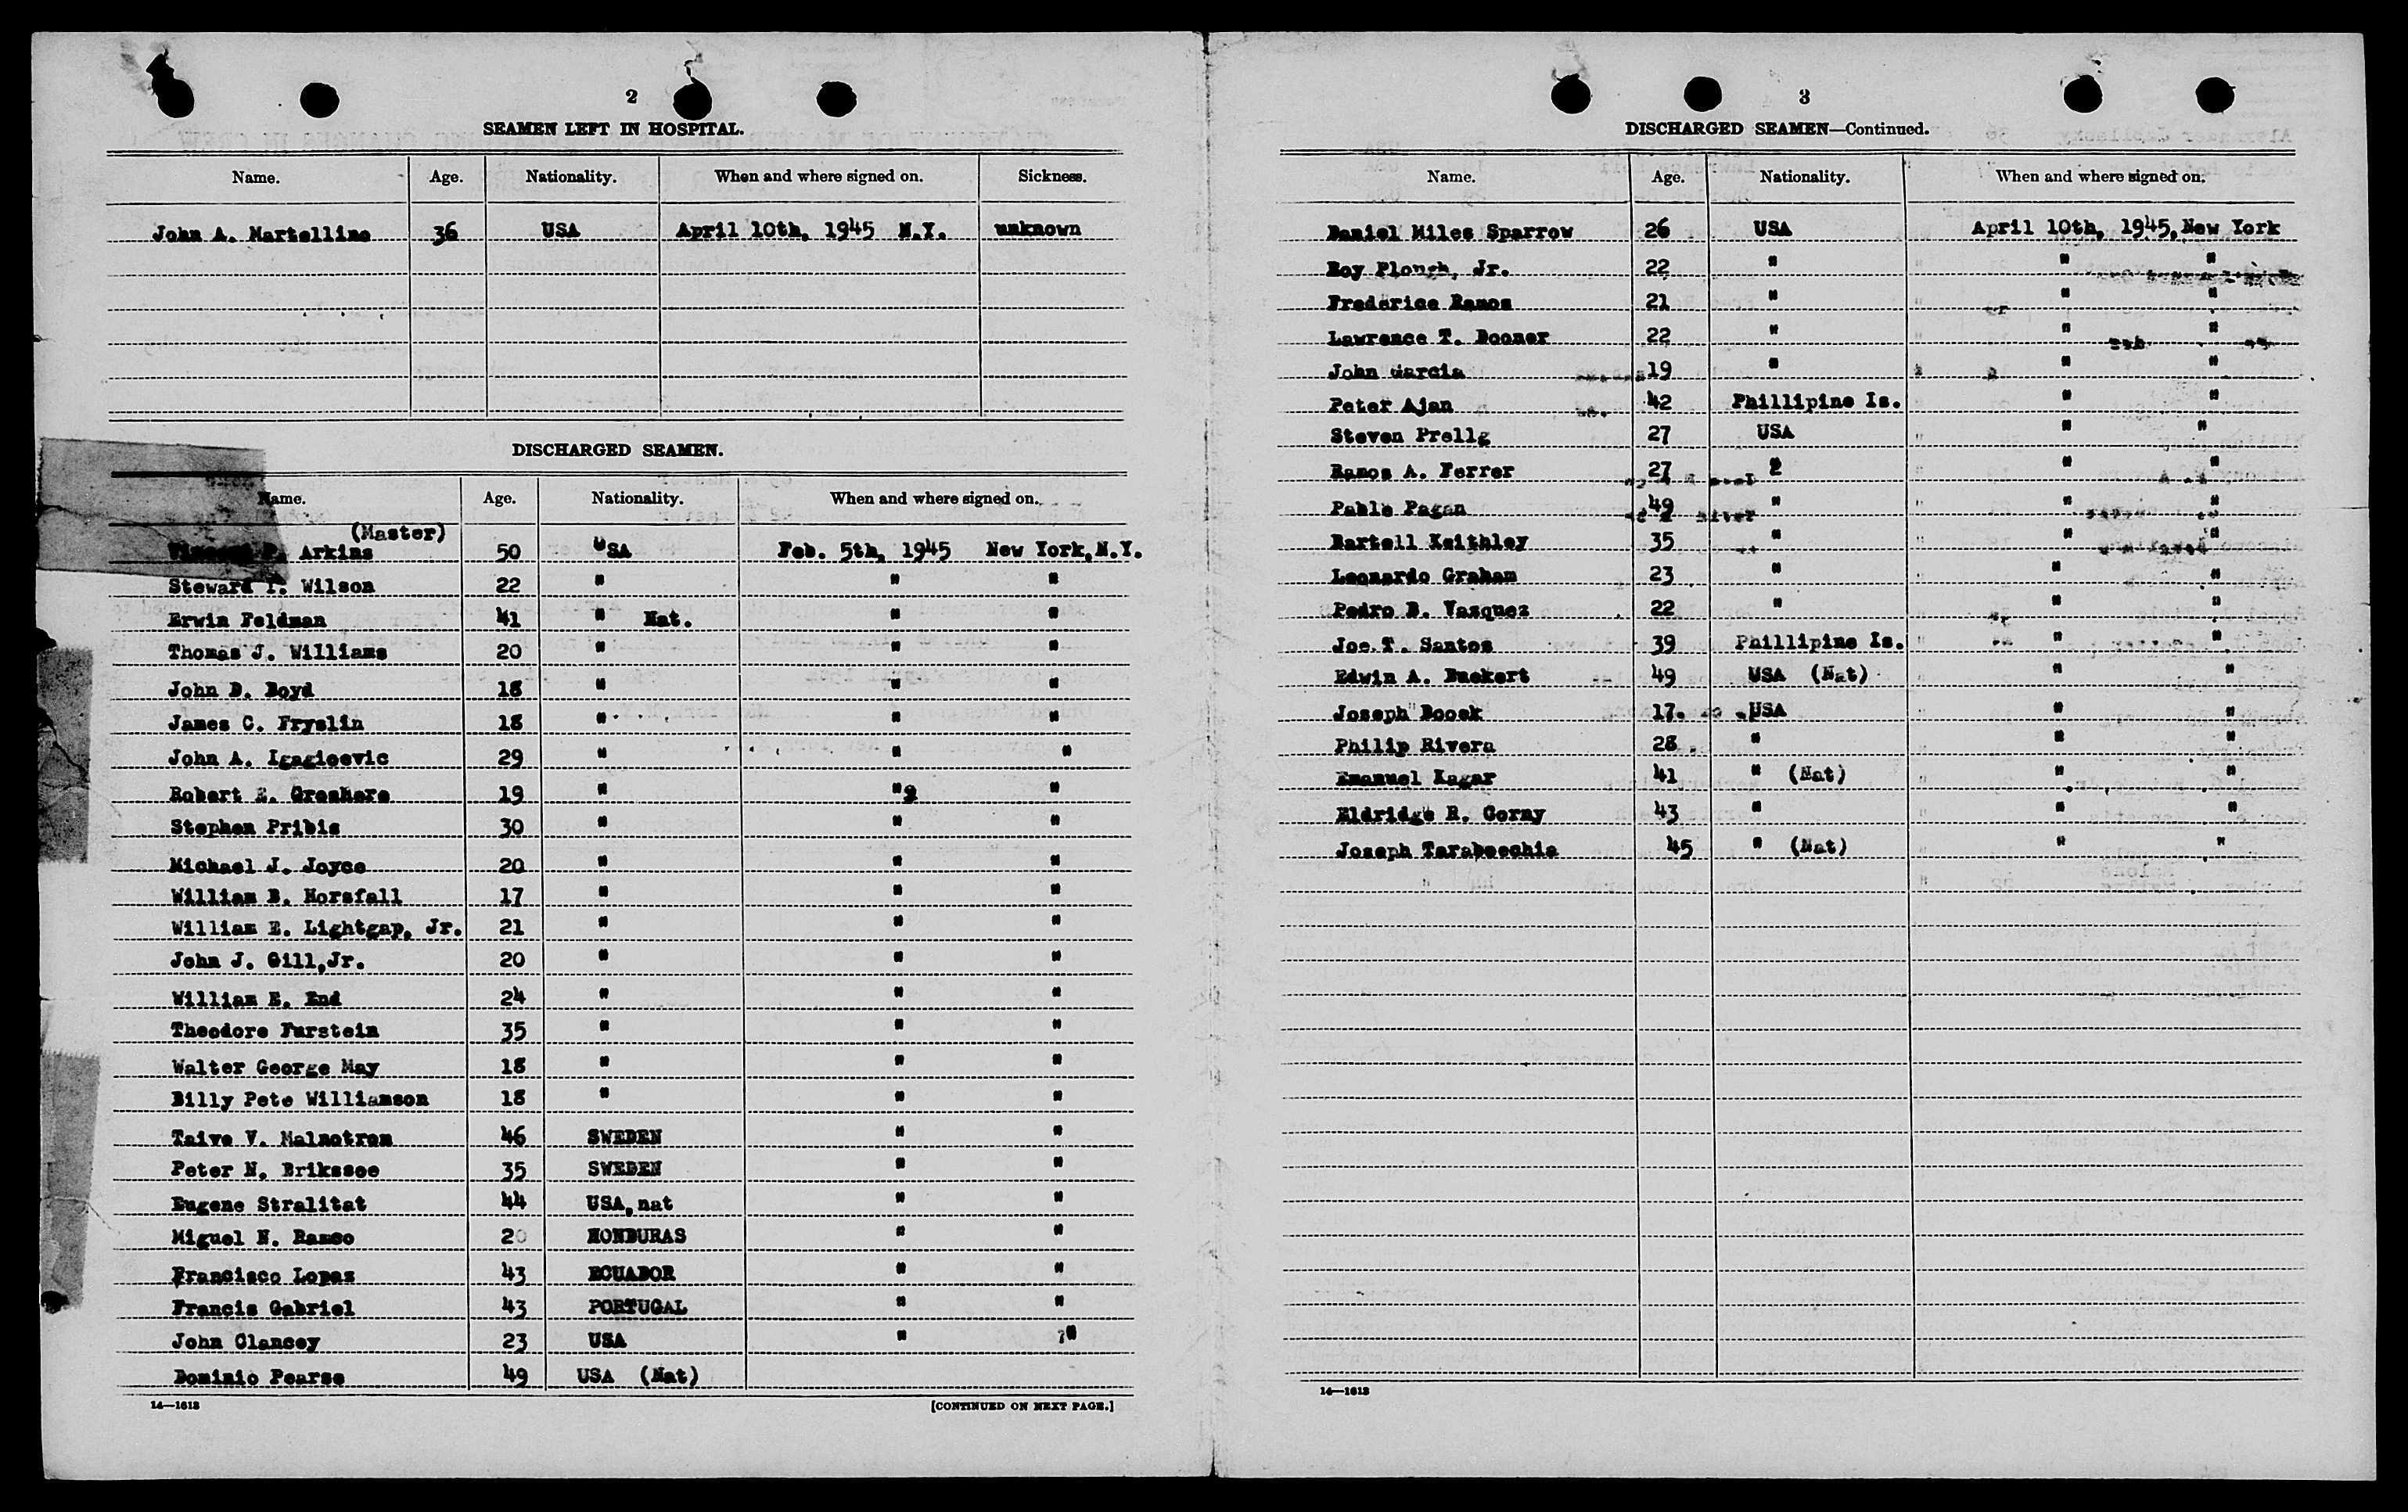 2
SEAMEN LEFT IN HOSPITAL.
Name. Age. Nationality. When and where signed on. Sickness.
John A. Martelline 36 USA April 10th, 1945 N.Y. unknown
DISCHARGED SEAMEN.
Name. Age. Nationality. When and where signed on.
(Master)
Vincent P. Arkins 50 USA Feb. 5th, 1945 New York, N.Y.
Steward T. Wilson 22 " " "
Erwin Feldman 41 " Nat. " "
Thomas J. Williams 20 " " "
John D. Boyd 18 " " "
James C. Fryslin 18 " " "
John A. Igagicevic 29 " " "
Robert E. Greshere 19 " " "
Stephen Pribis 30 " " "
Michael J. Joyce 20 " " "
William B. Horsfall 17 " " "
William E. Lightgap, Jr. 21 " " "
John J. Gill, Jr. 20 " " "
William E. End 24 " " "
Theodore Furstein 35 " " "
Walter George May 18 " " "
Billy Pete Williamson 18 " " "
Taive V. Malmstrom 46 SWEDEN " "
Peter N. Erikssoe 35 SWEDEN " "
Eugene Stralitat 44 USA, nat " "
Miguel N. Ramso 20 HONDURAS " "
Francisco Lopaz 43 ECUADOR " "
Francis Gabriel 43 PORTUGAL " "
John Clancey 23 USA " "
Dominio Pearse 49 USA (Nat)
14—1613 [CONTINUED ON NEXT PAGE.]
3
DISCHARGED SEAMEN—Continued.
Name. Age. Nationality. When and where signed on.
Daniel Miles Sparrow 26 USA April 10th, 1945, New York
Roy Plough, Jr. 22 " " "
Frederice Ramos 21 " " "
Lawrence T. Dooner 22 " " "
John Garcia 19 " " "
Peter Ajan 42 Phillipine Is. " "
Steven Prellg 27 USA " "
Ramos A. Ferrer 27 2 " "
Pablo Pagan 49 " " "
Bartell Keithley 35 " " "
Leonardo Graham 23 " " "
Pedro B. Vasquez 22 " " "
Joe T. Santos 39 Phillipine Is. " "
Edwin A. Buekert 49 USA (Nat) " "
Joseph Bocek 17 USA " "
Philip Rivera 28 " " "
Emanuel Kagar 41 " (Nat) " "
Eldridge R. Gorny 43 " " "
Joseph Taraboechia 45 " (Nat) " "
14—1613